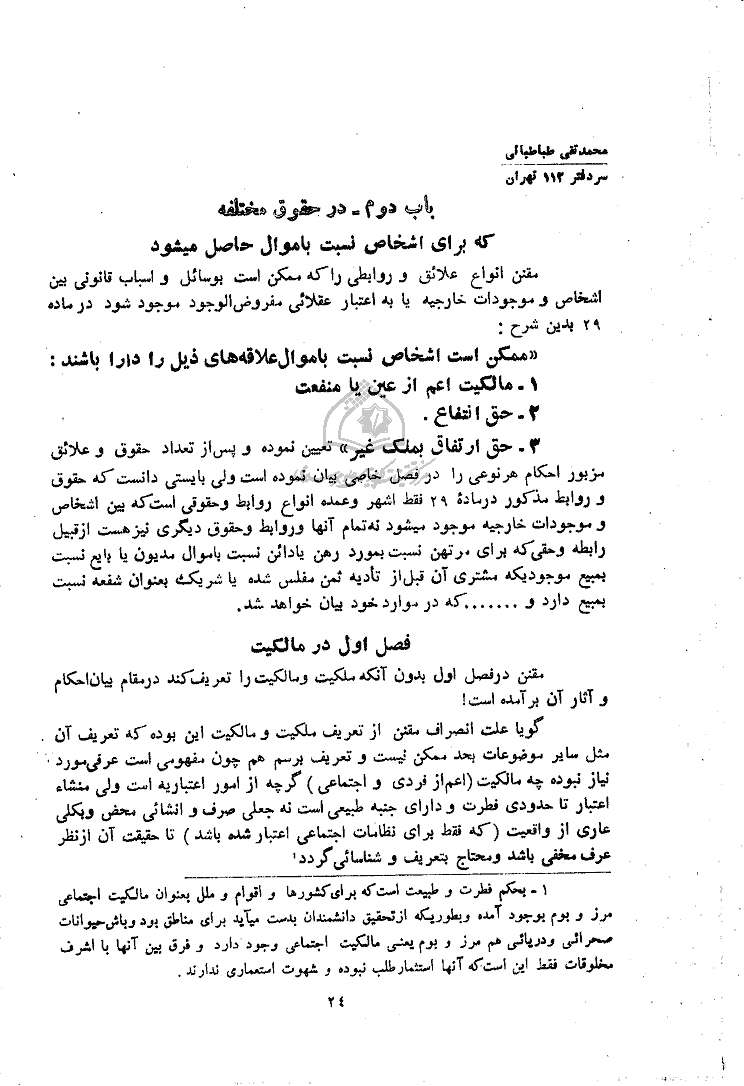 محمدتقی طباطبائی
سردفتر ۱۱۲ تهران
باب دوم ـ در حقوق مختلفه
که برای اشخاص نسبت باموال حاصل میشود
مقنن انواع علائق و روابطی را که ممکن است بوسائل و اسباب قانونی بین
اشخاص و موجودات خارجیه یا به اعتبار عقلائی مفروض‌الوجود موجود شود در ماده
۲۹ بدین شرح :
«ممکن است اشخاص نسبت باموال علاقه‌های ذیل را دارا باشند :
۱ ـ مالکیت اعم از عین یا منفعت
۲ ـ حق انتفاع .
۳ ـ حق ارتفاق بملک غیر» تعیین نموده و پس‌از تعداد حقوق و علائق
مزبور احکام هرنوعی را در فصل خاصی بیان نموده است ولی بایستی دانست که حقوق
و روابط مذکور درمادهٔ ۲۹ فقط اشهر وعمده انواع روابط وحقوقی است‌که بین اشخاص
و موجودات خارجیه موجود میشود نه‌تمام آنها وروابط وحقوق دیگری نیزهست ازقبیل
رابطه وحقی‌که برای مرتهن نسبت بمورد رهن یادائن نسبت باموال مدیون یا بایع نسبت
بمبیع موجودیکه مشتری آن قبل‌از تأدیه ثمن مفلس شده یا شریک بعنوان شفعه نسبت
بمبیع دارد و .......که در موارد خود بیان خواهد شد.
فصل اول در مالکیت
مقنن درفصل اول بدون آنکه ملکیت ومالکیت را تعریف‌کند درمقام بیان‌احکام
و آثار آن برآمده است!
گویا علت انصراف مقنن از تعریف ملکیت و مالکیت این بوده که تعریف آن
مثل سایر موضوعات بحد ممکن نیست و تعریف برسم هم چون مفهومی است عرفی‌مورد
نیاز نبوده چه مالکیت (اعم‌از فردی و اجتماعی) گرچه از امور اعتباریه است ولی منشاء
اعتبار تا حدودی فطرت و دارای جنبه طبیعی است نه جعلی صرف و انشائی محض وبکلی
عاری از واقعیت (که فقط برای نظامات اجتماعی اعتبار شده باشد) تا حقیقت آن ازنظر
عرف مخفی باشد ومحتاج بتعریف و شناسائی‌گردد۱
۱ ـ بحکم فطرت و طبیعت است‌که برای‌کشورها و اقوام و ملل بعنوان مالکیت اجتماعی
مرز و بوم بوجود آمده وبطوریکه ازتحقیق دانشمندان بدست میآید برای مناطق بود وباش‌حیوانات
صحرائی ودریائی هم مرز و بوم یعنی مالکیت اجتماعی وجود دارد و فرق بین آنها با اشرف
مخلوقات فقط این است‌که آنها استثمارطلب نبوده و شهوت استعماری ندارند .
۲٤